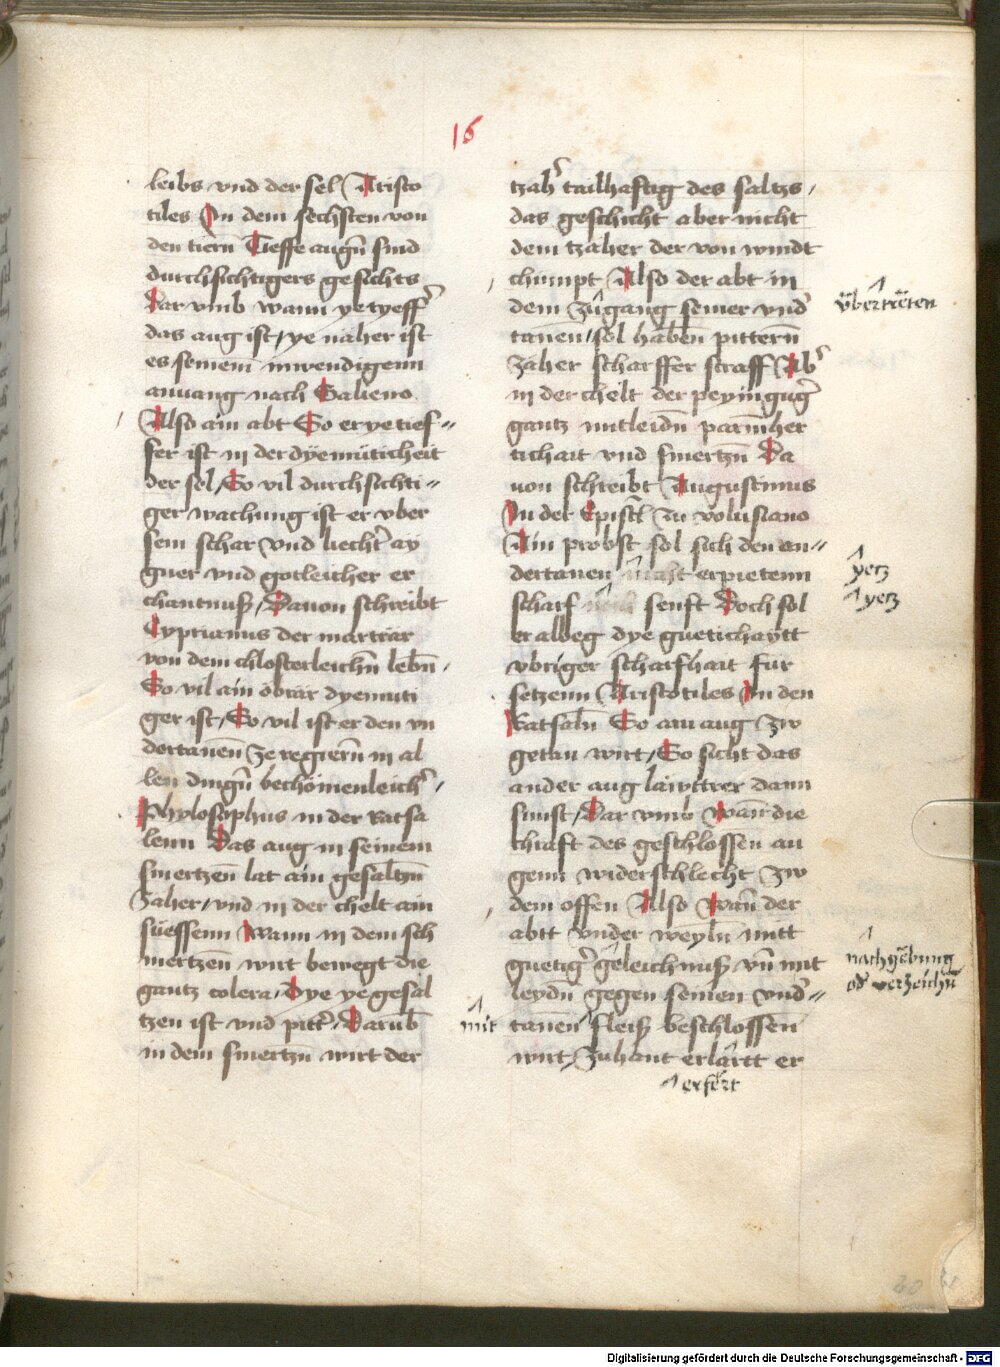 16
leibs vnd der sel Aristo
tiles In dem sechsten von
den tiern Tieffe augn̄ sind
durchsichtigers gesichts
Dar vmb wann ye tyeff'
das aug ist / ye näher ist
es seinem inwendigenn
anuang nach Galieno
Also ain abt So er ye tief⸗
fer ist in der dyemüticheit
der sel / So vil durchsichti⸗
ger wachung ist er vber
sein schar Vnd liecht' ay
gner vnd gotleicher er
chantnuß / Dauon schreibt
Cyprianus der marträr
von dem chlosterleichn̄ lebn̄
So vil ain öbrär dyemuti
ger ist / So vil ist er den vn
dertanen̄ ze regiern̄ in al
len dingn̄ bechömenleich'
Phylosophus in der Ratsa
lenn Das aug in seinem
smertzen̄ lat ain gesaltzn̄
Zäher / vnd in der chelt ain
süessenn Wann in dem sch
mertzen̄ wirt bewegt die
gantz colera / Dye ye gesal
tzen ist vnd pitt' Darub̄
in dem smertzn̄ wirt der
tzah' tailhaftig des saltzs /
das geschicht aber nicht
dem tzäher der von windt
chumpt Also der abt in
dem zûgang seiner vnd'
tanen̄ / sol haben pittern̄
Zäher scharffer straff Ab'
in der chelt der peyingug'
gantz mitleidn̄ parm̄her
tichait vnd smertzn̄ Da
uon schreibt Augustinus
In der Epistl̄ zu volusiano
Ain probst sol sich den vn⸗
dertanen nicht erpietenn
scharf senft Doch sol
er albeg dye guetichaytt
vbriger scharfhait für
setzenn Aristotiles In den
Ratsaln̄ So ain aug zw
getan wirt / So sicht das
ander aug lawttrer dann
sunst / Dar vmb wan̄ die
chraft des geschlossen au
genn widerschlecht zw
dem offen Also wan̄ der
abtt vnder weyln̄ mitt
guetig' geleichnuß vn̄ mit
leydn̄ gegen seinen vnd'⸗
tanen̄ fleiß beschlossen
wirt / zuhant erlärtt er
übertretten
yetz
yetz
nachgebung
od' verzeichn̄
mit
erfert
Digitalisierung gefördert durch die Deutsche Forschungsgemeinschaft - DFG